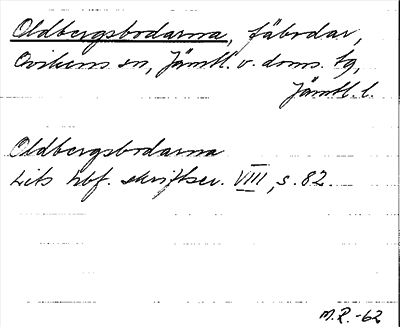 Oldbergsbodarna, fäbodar,
Ovikens sn, Jämtl. v. doms. tg,
Jämtl. l.
Oldbergsbodarna
Lits hbf. skriftser. VIII, s. 82.
M.R.-62